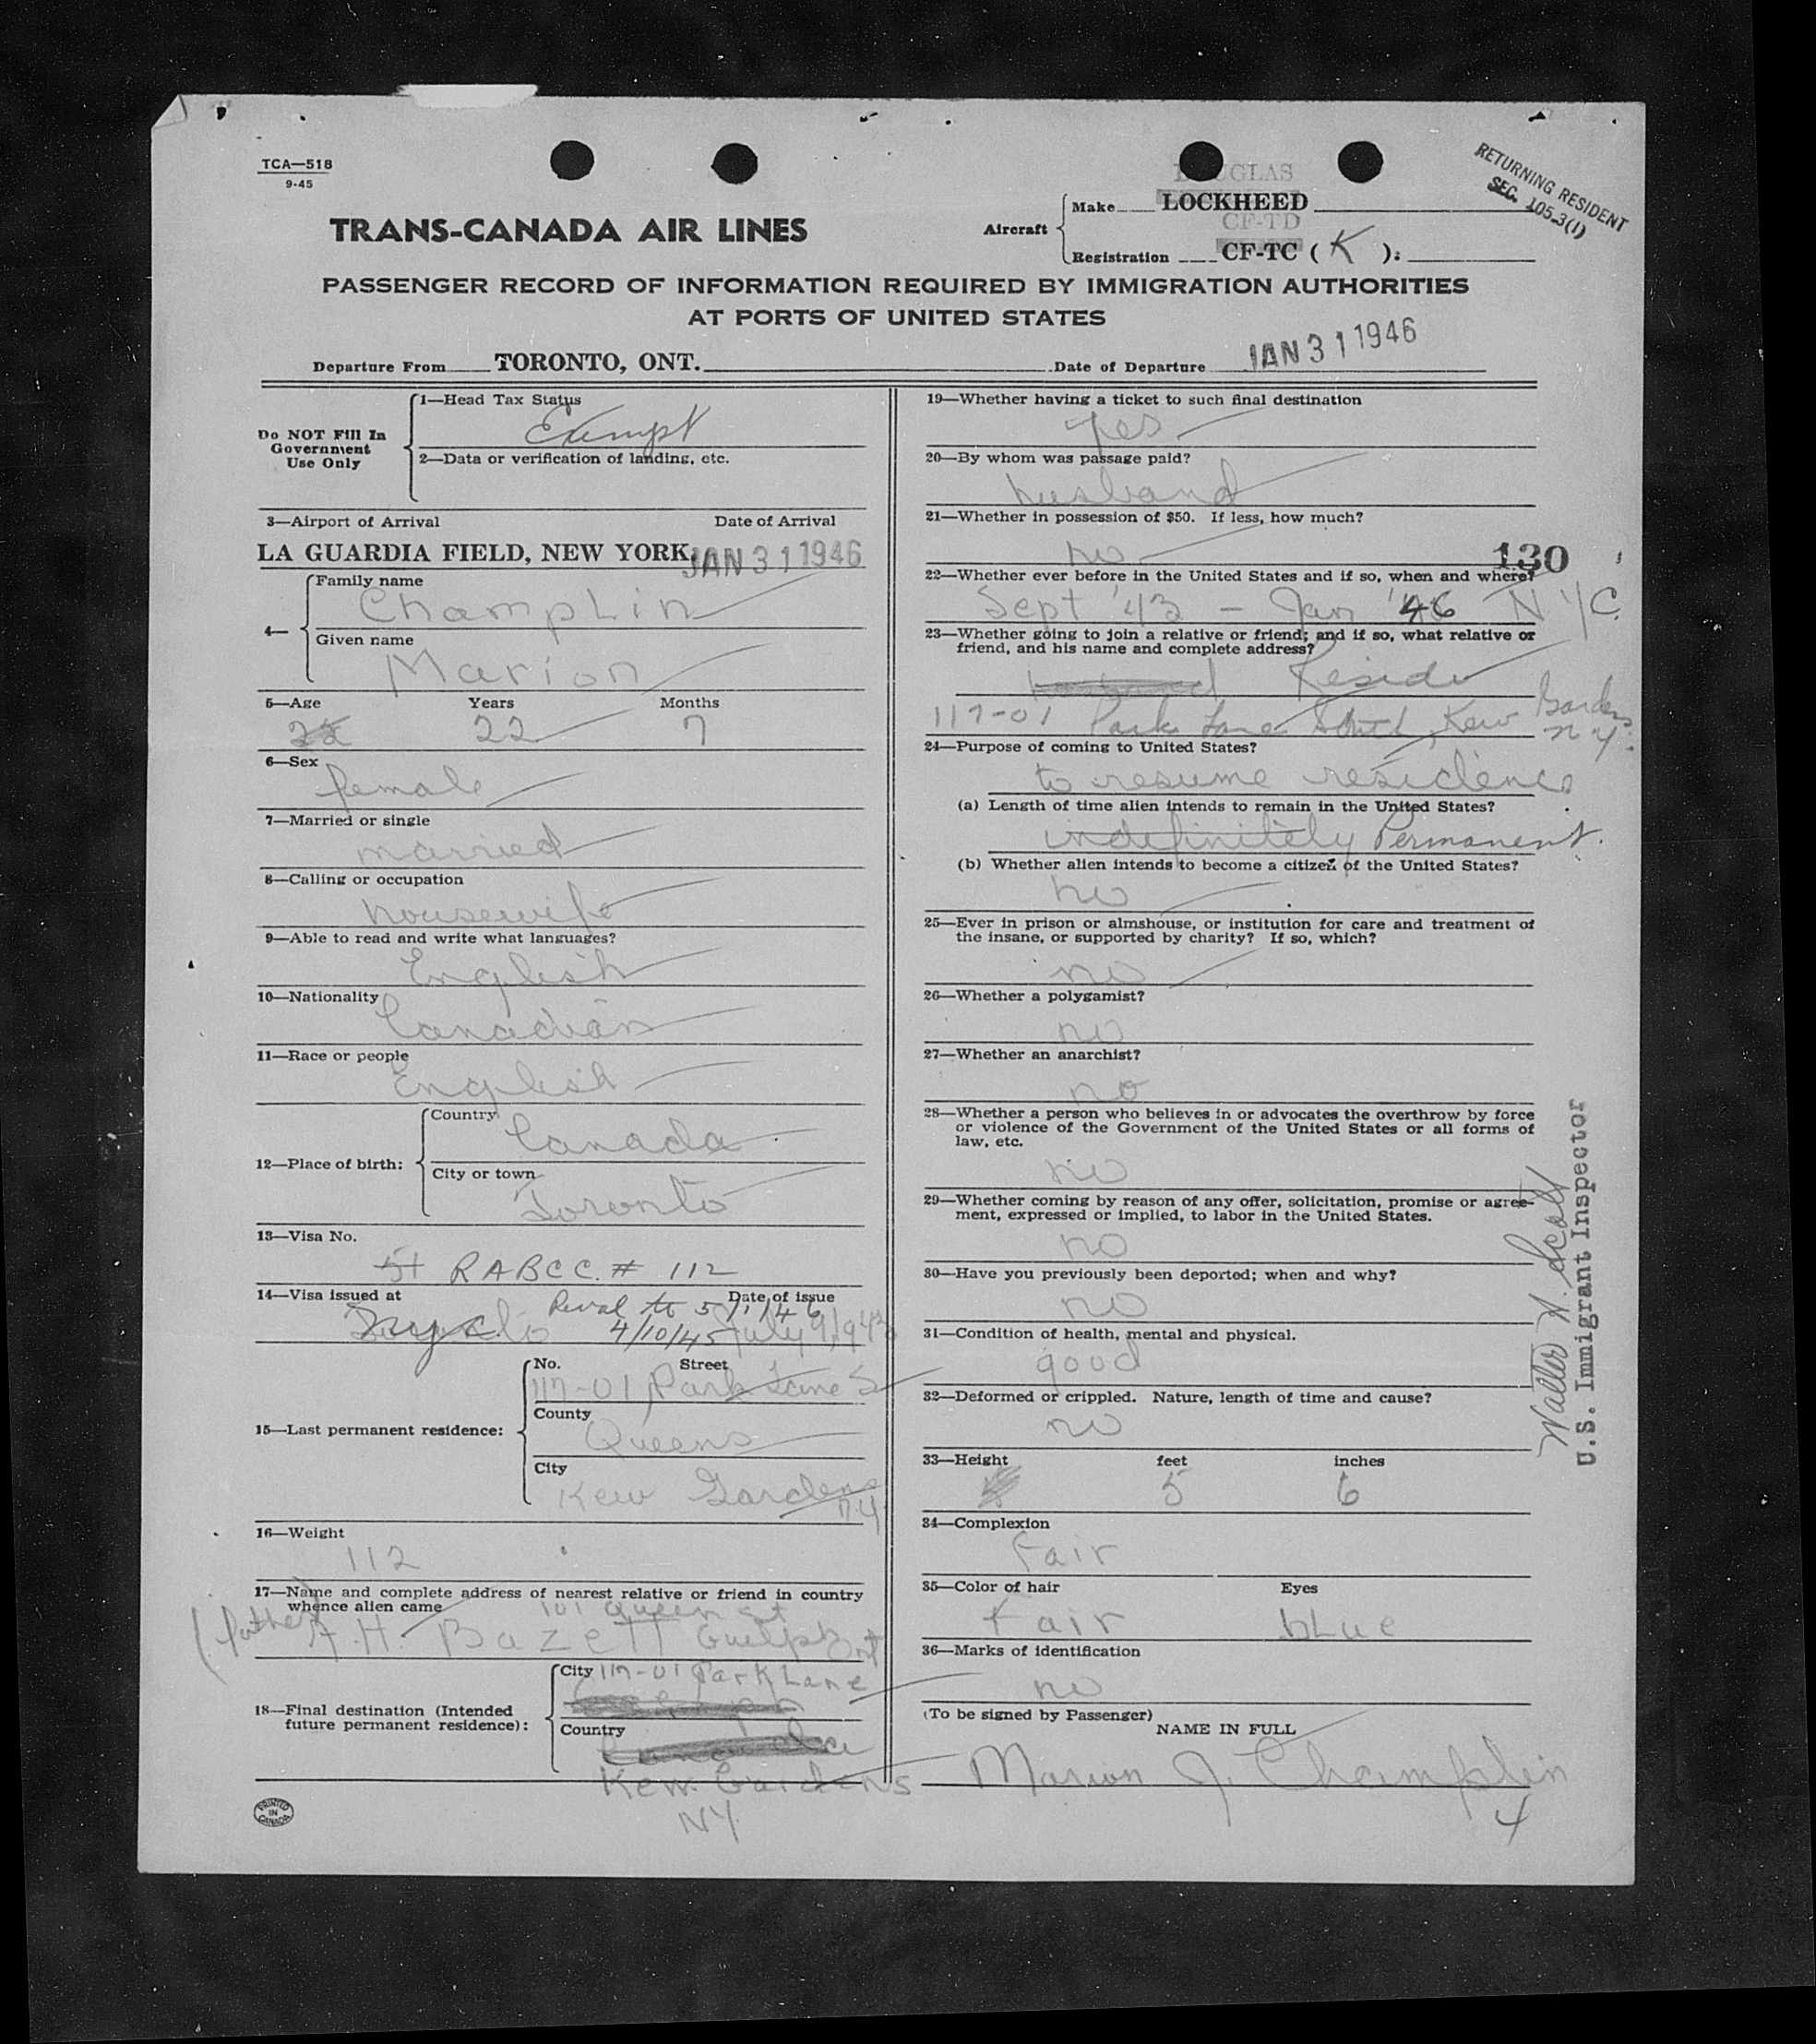 TCA—518
9-45
DOUGLAS
RETURNING RESIDENT
SEC. 105.3(1)
TRANS-CANADA AIR LINES
Aircraft
Make LOCKHEED
CF-TD
Registration CF-TC (K):
PASSENGER RECORD OF INFORMATION REQUIRED BY IMMIGRATION AUTHORITIES
AT PORTS OF UNITED STATES
Departure From TORONTO, ONT. Date of Departure JAN 31 1946
Do NOT Fill In
Government
Use Only
1—Head Tax Status
Exempt
2—Data or verification of landing, etc.
3—Airport of Arrival Date of Arrival
LA GUARDIA FIELD, NEW YORK. JAN 31 1946
4—
Family name
Champlin
Given name
Marion
5—Age Years Months
22 22 7
6—Sex
female
7—Married or single
married
8—Calling or occupation
housewife
9—Able to read and write what languages?
English
10—Nationality
Canadian
11—Race or people
English
12—Place of birth:
Country
Canada
City or town
Toronto
13—Visa No.
RABCC. # 112
14—Visa issued at Date of issue
Reval to 5/1/46
nyc. 4/10/45 July
15—Last permanent residence:
No. Street
117-01 Park Lane S
County
Queens
City
Kew Gardens
N.Y
16—Weight
112
17—Name and complete address of nearest relative or friend in country
whence alien came 101 Queen St
(father) A.H. Bazett Guelph Ont
18—Final destination (Intended
future permanent residence):
City 117-01 Park Lane
Country
Canada
Kew Gardens
NY
PRINTED
IN
CANADA
19—Whether having a ticket to such final destination
yes
20—By whom was passage paid?
husband
21—Whether in possession of $50. If less, how much?
no
130
22—Whether ever before in the United States and if so, when and where?
Sept '43 - Jan '46 N.Y.C.
23—Whether going to join a relative or friend; and if so, what relative or
friend, and his name and complete address?
husband Reside
117-01 Park Lane South, Kew Gardens
N.Y.
24—Purpose of coming to United States?
to resume residence
(a) Length of time alien intends to remain in the United States?
indefinitely Permanent.
(b) Whether alien intends to become a citizen of the United States?
no
25—Ever in prison or almshouse, or institution for care and treatment of
the insane, or supported by charity? If so, which?
no
26—Whether a polygamist?
no
27—Whether an anarchist?
no
28—Whether a person who believes in or advocates the overthrow by force
or violence of the Government of the United States or all forms of
law, etc.
no
29—Whether coming by reason of any offer, solicitation, promise or agree-
ment, expressed or implied, to labor in the United States.
no
30—Have you previously been deported; when and why?
no
31—Condition of health, mental and physical.
good
32—Deformed or crippled. Nature, length of time and cause?
no
33—Height feet inches
5 6
34—Complexion
Fair
35—Color of hair Eyes
Fair blue
36—Marks of identification
no
(To be signed by Passenger)
NAME IN FULL
Marion J. Champlin
4
Walter H. Scott
U.S. Immigrant Inspector